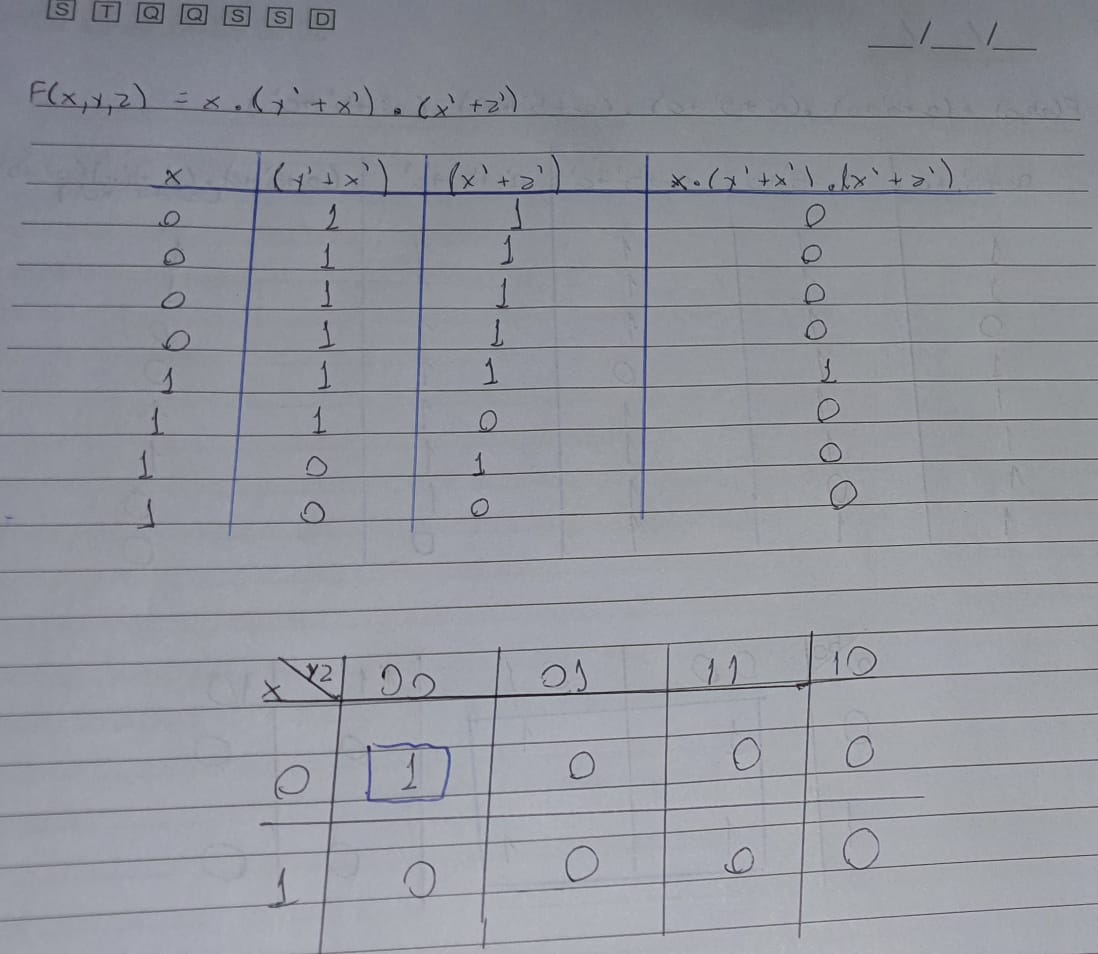 S T Q Q S S D
__/__/__
F(x,y,z) = x.(y'+x').(x'+z')
x (y'+x') (x'+z') x.(y'+x').(x'+z')
0 1 1 0
0 1 1 0
0 1 1 0
0 1 1 0
1 1 1 1
1 1 0 0
1 0 1 0
1 0 0 0
x yz 00 01 11 10
0 1 0 0 0
1 0 0 0 0